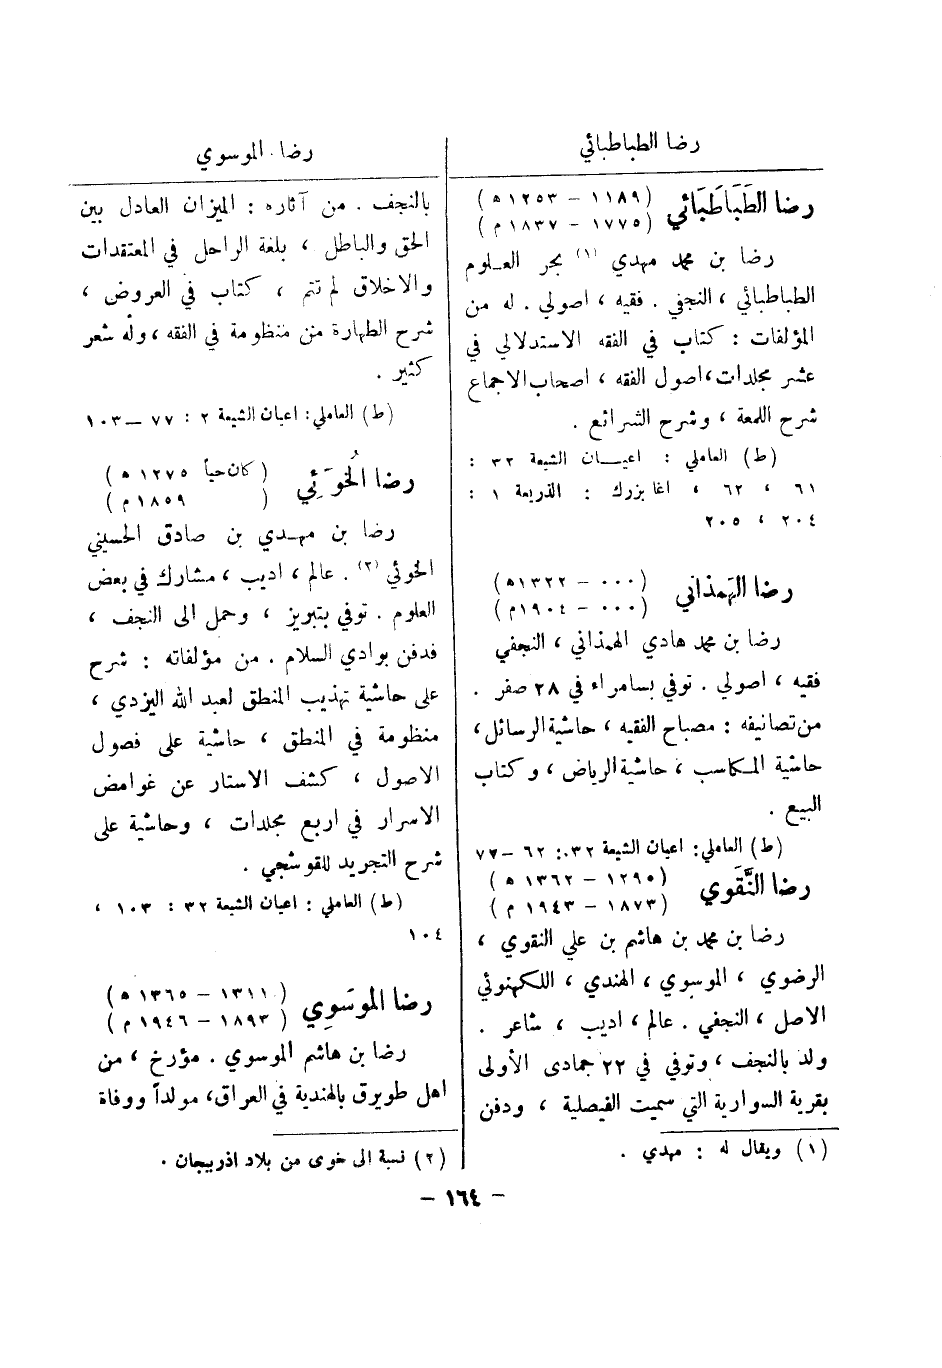 رضا الطباطبائي
رضا الموسوي
رضا الطَّبَاطَبَائي (١١٨٩ - ١٢٥٣ ه)
(١٧٧٥ - ١٨٣٧ م)
رضا بن محمد مهدي (١) بحر العلوم
الطباطبائي ، النجفي . فقيه ، اصولي . له من
المؤلفات : كتاب في الفقه الاستدلالي في
عشر مجلدات ، اصول الفقه ، اصحاب الاجماع
شرح اللمعة ، وشرح الشرائع .
(ط) العاملي : اعيان الشيعة ٣٢ :
٦١ ، ٦٢ ، اغا بزرك : الذريعة ١ :
٢٠٤ ، ٢٠٥
رضا الهَمَذاني (٠٠٠ - ١٣٢٢ ه)
(٠٠٠ - ١٩٠٤ م)
رضا بن محمد هادي الهمذاني ، النجفي
فقيه ، اصولي . توفي بسامراء في ٢٨ صفر .
من تصانيفه : مصباح الفقيه ، حاشية الرسائل ،
حاشية المكاسب ، حاشية الرياض ، وكتاب
البيع .
(ط) العاملي : اعيان الشيعة ٣٢ : ٦٢ - ٧٧
رضا النَّقَوي (١٢٩٠ - ١٣٦٢ ه)
(١٨٧٣ - ١٩٤٣ م)
رضا بن محمد بن هاشم بن علي النقوي ،
الرضوي ، الموسوي ، الهندي ، اللكهنوئي
الاصل ، النجفي . عالم ، اديب ، شاعر .
ولد بالنجف ، وتوفي في ٢٢ جمادى الأولى
بقرية السوارية التي سميت الفيصلية ، ودفن
(١) ويقال له : مهدي .
بالنجف . من آثاره : الميزان العادل بين
الحق والباطل ، بلغة الراحل في المعتقدات
والاخلاق لم تتم ، كتاب في العروض ،
شرح الطهارة من منظومة في الفقه ، وله شعر
كثير .
(ط) العاملي : اعيان الشيعة ٢ : ٧٧ - ١٠٣
رضا الخُوَئِي (كان حياً ١٢٧٥ ه)
( ١٨٥٩ م)
رضا بن مهدي بن صادق الحسيني
الخوئي (٢) . عالم ، اديب ، مشارك في بعض
العلوم . توفي بتبريز ، وحمل الى النجف ،
فدفن بوادي السلام . من مؤلفاته : شرح
على حاشية تهذيب المنطق لعبد الله اليزدي ،
منظومة في المنطق ، حاشية على فصول
الاصول ، كشف الاستار عن غوامض
الاسرار في اربع مجلدات ، وحاشية على
شرح التجريد للقوشجي .
(ط) العاملي : اعيان الشيعة ٣٢ : ١٠٣ ،
١٠٤
رضا الموسَوِي (١٣١١ - ١٣٦٥ ه)
(١٨٩٣ - ١٩٤٦ م)
رضا بن هاشم الموسوي . مؤرخ ، من
اهل طويرق بالهندية في العراق ، مولداً ووفاة
(٢) نسبة الى خوى من بلاد اذربيجان .
- ١٦٤ -